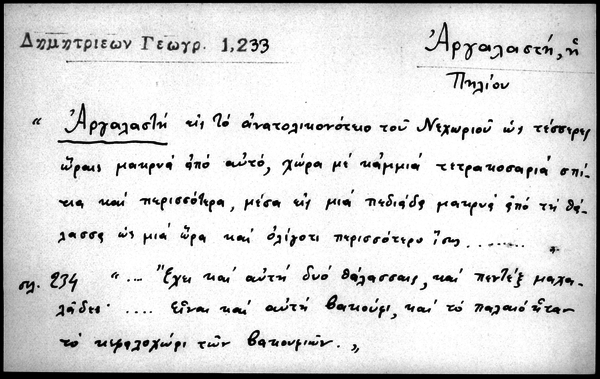 Δημητριεων Γεωγρ. 1,233
Ἀργαλαστή, ἡ
Πηλίου
" Ἀργαλαστή εἰς τὸ ἀνατολικονότειο τοῦ Νεχωριοῦ ὡς τέσσερες
ὥραις μακρυά ἀπό αὐτό, χώρα μέ κάμμιά τετρακοσαριά σπί-
τια καί περισσότερα, μέσα εἰς μιά πεδιάδα μακρυά ἀπό τή θά-
λασσα ὡς μιά ὥρα καί ὀλίγοτι περισσότερο ἴσως ........
σελ. 234 "... Ἔχει καί αὐτή δυό θάλασσαις, καί πεντέξ μαχα-
λάδες .... Εἶναι καί αὐτή βακούφι, καί τό παλαιό ἦταν
τό κεφαλοχώρι τῶν βακουφιῶν. "